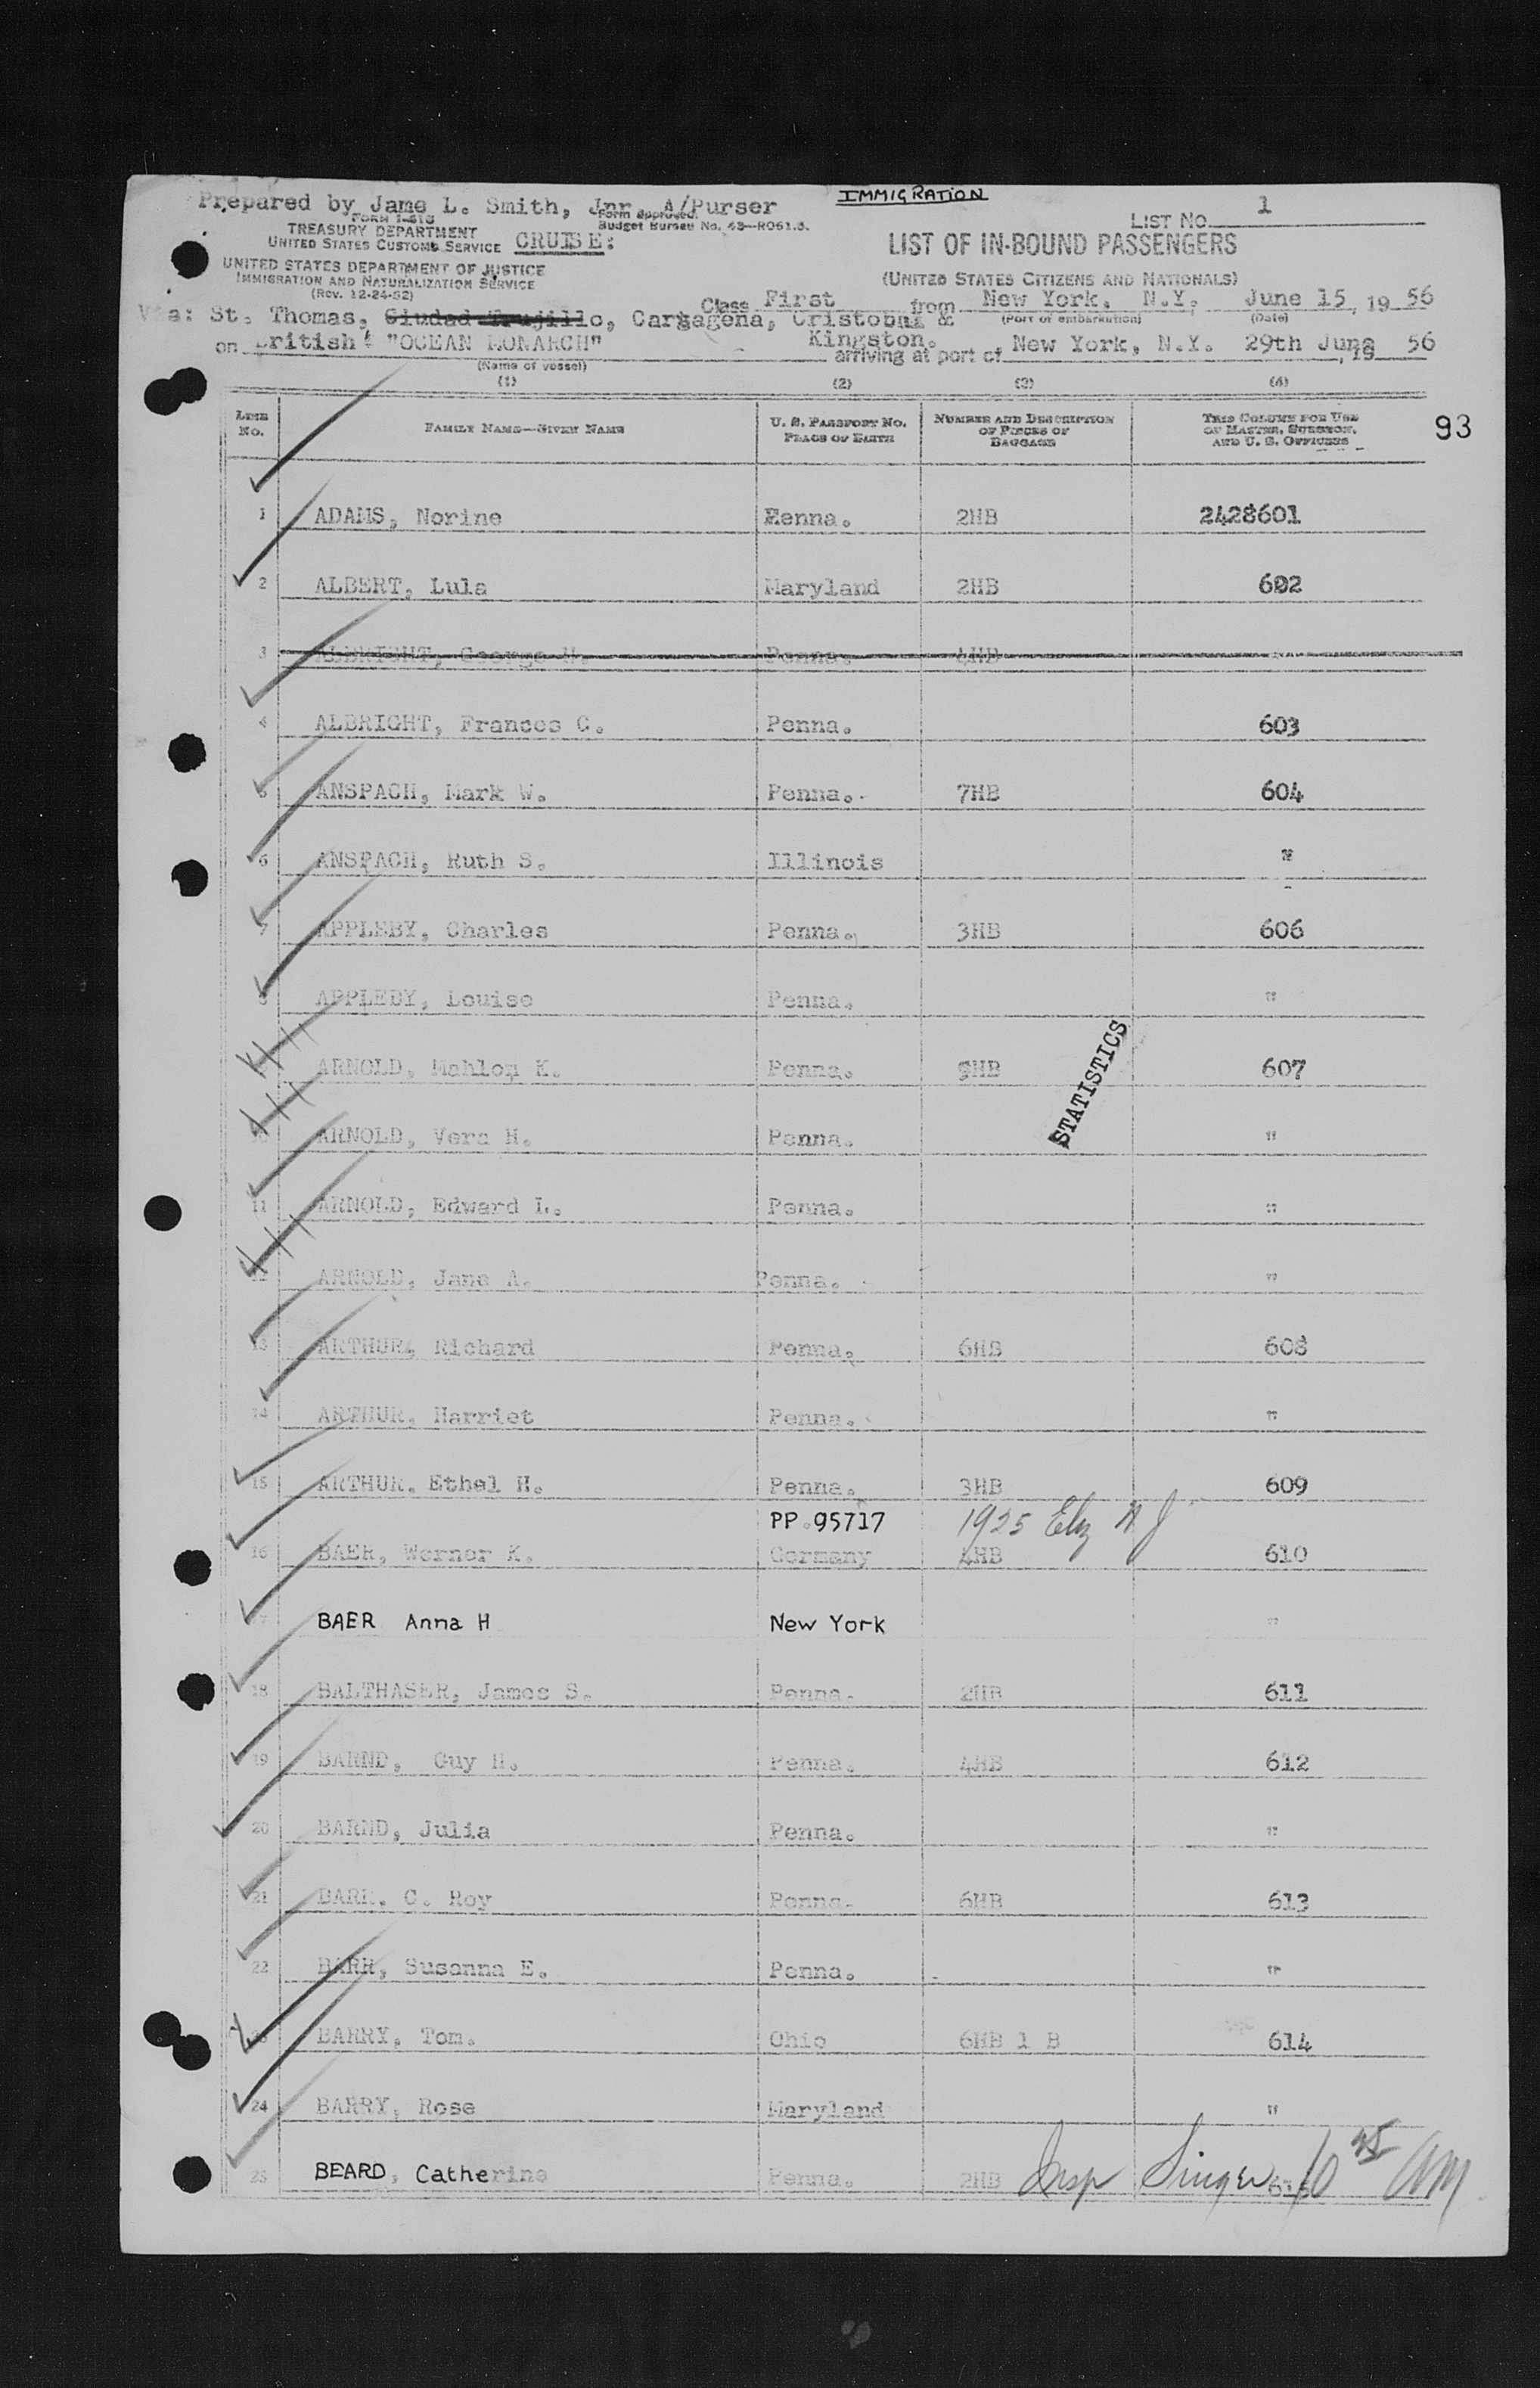 IMMIGRATION
Prepared by Jame L. Smith, Jnr. A/Purser
FORM I-418
Form approved.
Budget Bureau No. 43—R061.3.
LIST No. 1
TREASURY DEPARTMENT
UNITED STATES CUSTOMS SERVICE
CRUISE:
LIST OF IN-BOUND PASSENGERS
UNITED STATES DEPARTMENT OF JUSTICE
IMMIGRATION AND NATURALIZATION SERVICE
(Rev. 12-24-52)
(UNITED STATES CITIZENS AND NATIONALS)
Class First from New York, N.Y., June 15, 19 56
(Port of embarkation) (Date)
Via: St. Thomas, Ciudad Trujillo, Cargagena, Cristobal &
Kingston.
on British "OCEAN MONARCH" arriving at port of New York, N.Y. 29th June, 19 56
(Name of vessel)
(1) (2) (3) (4)
LINE No. FAMILY NAME—GIVEN NAME U. S. PASSPORT NO. PLACE OF BIRTH NUMBER AND DESCRIPTION OF PIECES OF BAGGAGE THIS COLUMN FOR USE OF MASTER, SURGEON, AND U. S. OFFICERS
93
1 ADAMS, Norine Penna. 2HB 2428601
2 ALBERT, Lula Maryland 2HB 602
3 ALBRIGHT, George H. Penna. 4HB
4 ALBRIGHT, Frances C. Penna. 603
5 ANSPACH, Mark W. Penna. 7HB 604
6 ANSPACH, Ruth S. Illinois "
7 APPLEBY, Charles Penna. 3HB 606
8 APPLEBY, Louise Penna. "
STATISTICS
ARNOLD, Mahlon K. Penna. HB 607
10 ARNOLD, Vera H. Penna. "
11 ARNOLD, Edward L. Penna. "
12 ARNOLD, Jane A. Penna. "
13 ARTHUR, Richard Penna. 6HB 608
14 ARTHUR, Harriet Penna. "
15 ARTHUR. Ethel H. Penna. 3HB 609
PP.95717 1925 Eliz N J
16 BAER, Werner K. Germany 4HB 610
17 BAER Anna H New York "
18 BALTHASER, James S. Penna. 2HB 611
19 BARND, Guy H. Penna. 4HB 612
20 BARND, Julia Penna. "
21 BARR. C. Roy Penna. 6HB 613
22 BARR, Susanna E. Penna. "
23 BARRY. Tom. Ohio 6HB 1 B 614
24 BARRY, Rose Maryland "
25 BEARD, Catherine Penna. 2HB 615
Insp Singer 10 25 AM